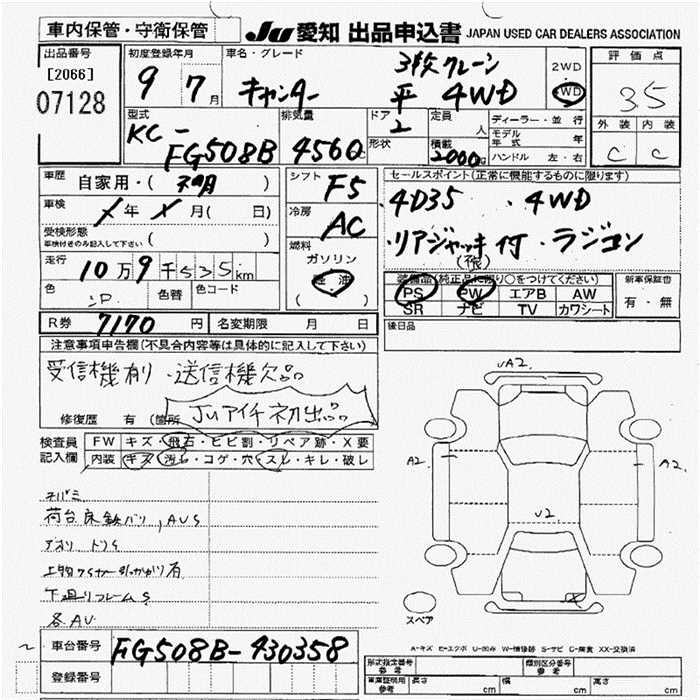 車内保管・守衛保管
JU 愛知 出品申込書 JAPAN USED CAR DEALERS ASSOCIATION
出品番号
[2066]
07128
初度登録年月
9 7月
車名・グレード
キャンター
3枚クレーン
平 4WD
2WD
4WD
評価点
3.5
外装 内装
C C
型式
KC-
FG508B
排気量
4560c
ドア
2
形状
定員
人
積載
2000kg
ディーラー・並行
モデル年式 年
ハンドル 左・右
車歴
自家用・( )
車検
年 月( 日)
受検形態
車検付きのみ記入して下さい ( )
走行
10万9千535km
色
色替
色コード
シフト
F5
冷房
AC
燃料
ガソリン
軽油
( )
セールスポイント(正常に機能するものに限ります)
・4D35 ・4WD
・リアジャッキ付 ・ラジコン
装備品(純正品に限り○をつけてください)
PS PW エアB AW
SR ナビ TV カワシート
新車保証書
有・無
後日品
R券 7170円
名変期限 月 日
注意事項申告欄(不具合内容等は具体的に記入して下さい)
受信機有り・送信機欠品
JUアイチ初出品
修復歴 有 (箇所
検査員記入欄
FW キズ・飛石・ヒビ割・リペア跡・X要
内装 キズ・汚れ・コゲ・穴・スレ・キレ・破レ
荷台床鉄バリ, AUS
下廻りフレームS
各AU
UA2
A2
A2
U2
スペア
A-キズ E-エクボ U-凹み W-補修跡 S-サビ C-腐食 XX-交換済
車台番号 FG508B-430358
登録番号
形式指定番号 参考
類別区分番号 参考
車庫証明用 参考 長さ cm 幅 cm 高さ cm